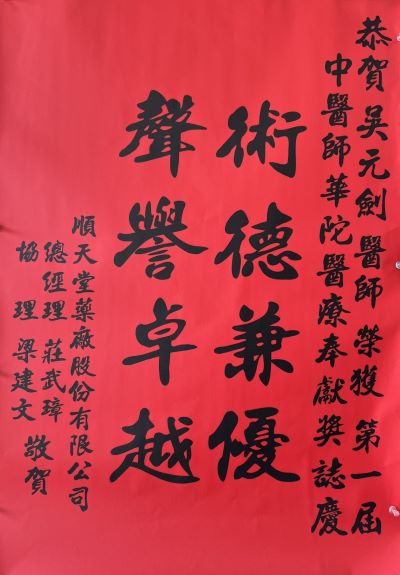 恭賀吳元劍醫師榮獲第一屆
中醫師華陀醫療奉獻獎誌慶
術德兼優
聲譽卓越
順天堂藥廠股份有限公司
總經理莊武璋
協理梁建文敬賀